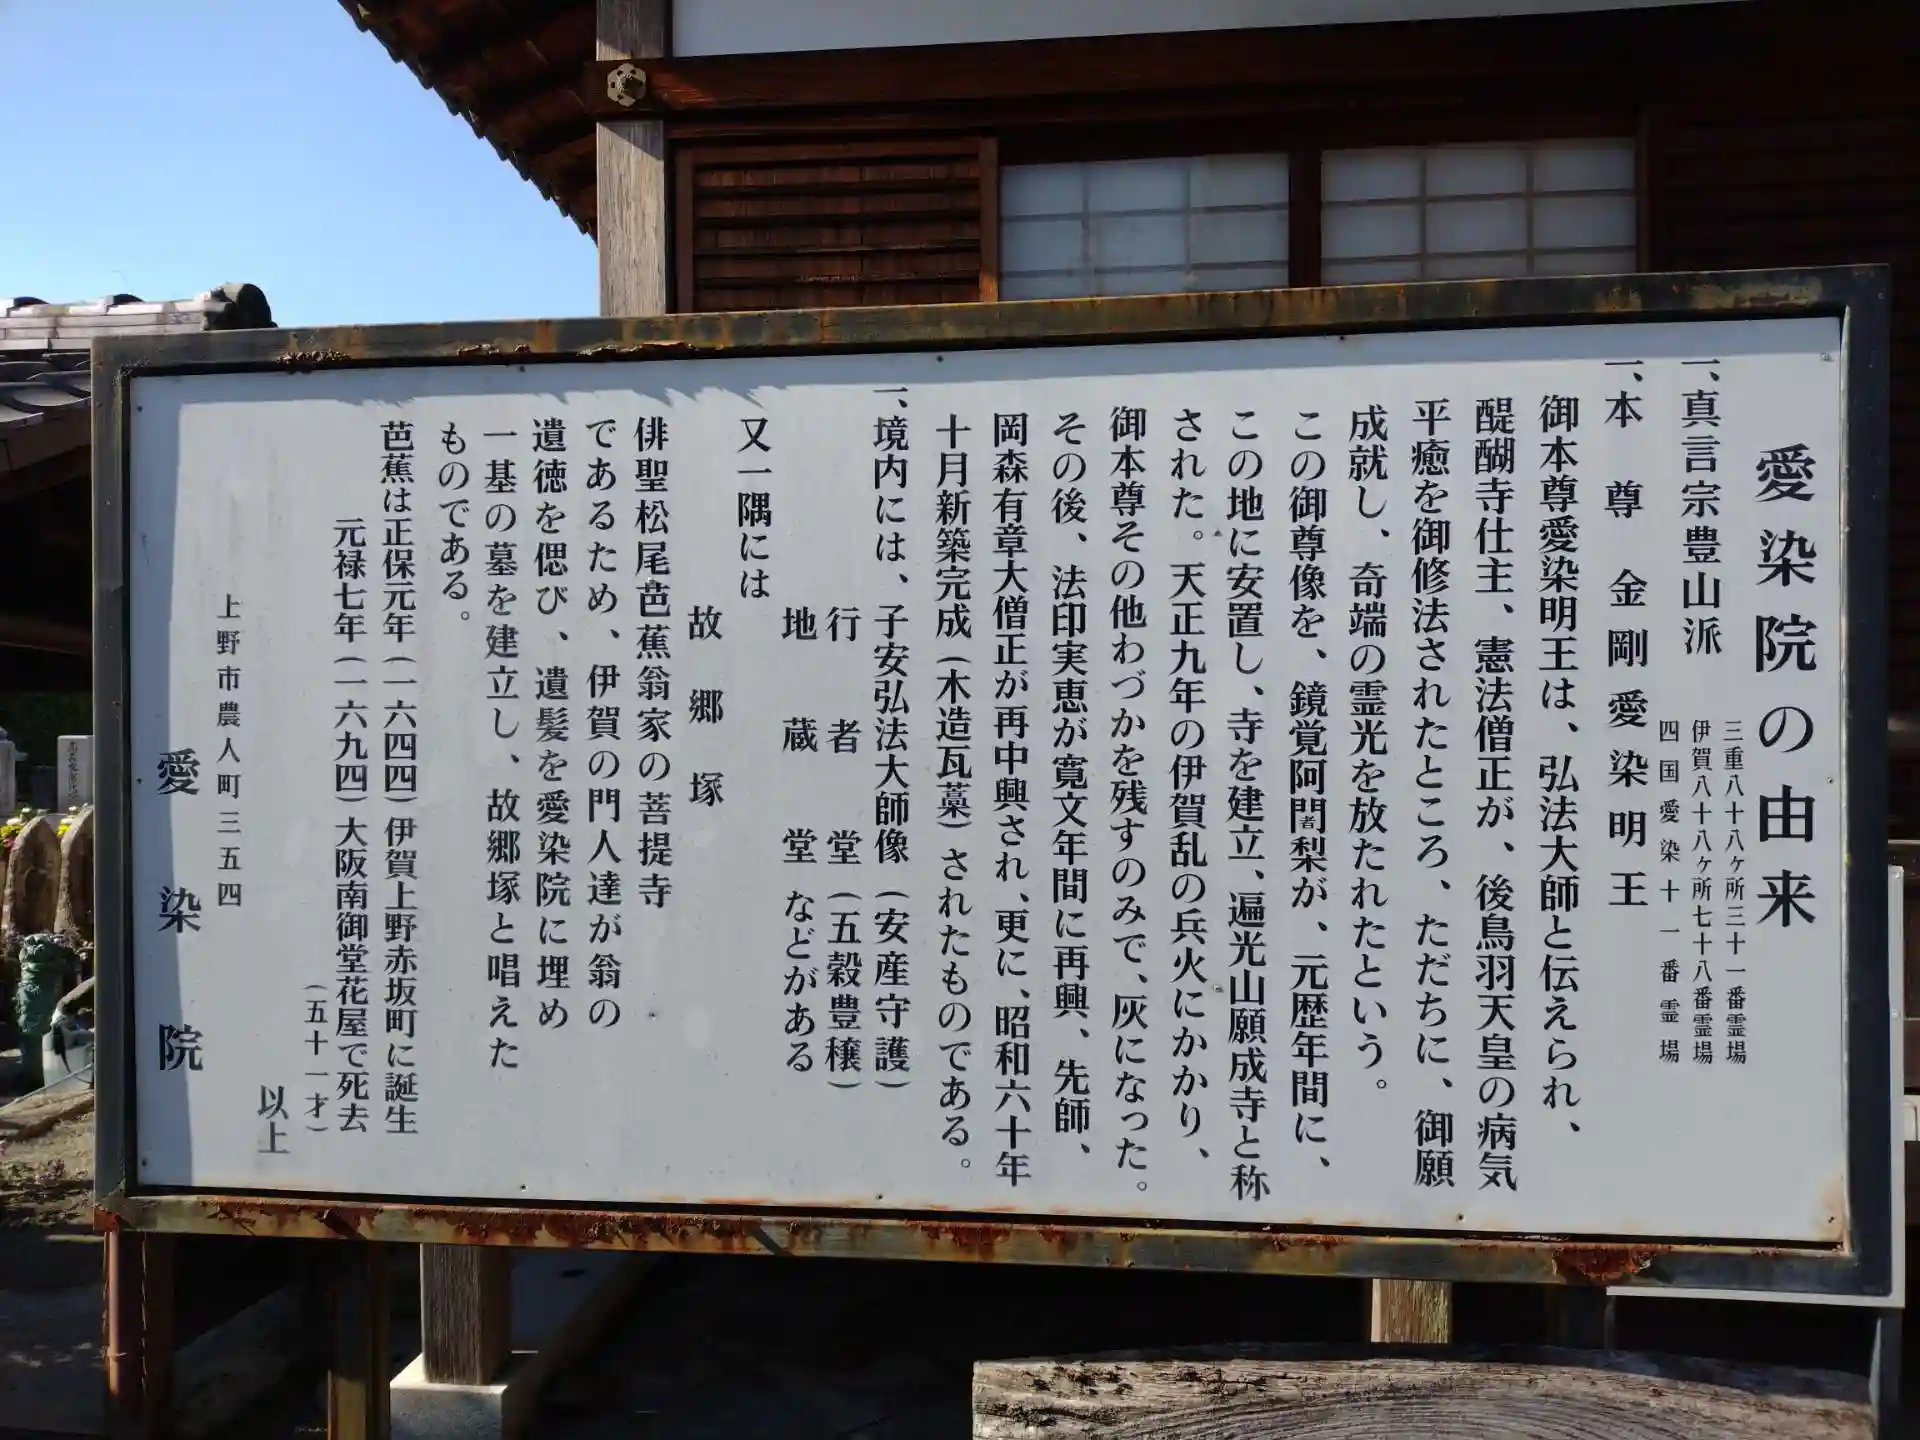 愛染院の由来
一、真言宗豊山派
三重八十八ヶ所三十一番霊場
伊賀八十八ヶ所七十八番霊場
四国愛染十一番霊場
一、本尊 金剛愛染明王
御本尊愛染明王は、弘法大師と伝えられ、
醍醐寺仕主、憲法僧正が、後鳥羽天皇の病気
平癒を御修法されたところ、ただちに、御願
成就し、奇端の霊光を放たれたという。
この御尊像を、鏡覚阿闍梨が、元歴年間に、
この地に安置し、寺を建立、遍光山願成寺と称
された。天正九年の伊賀乱の兵火にかかり、
御本尊その他わづかを残すのみで、灰になった。
その後、法印実恵が寛文年間に再興、先師、
岡森有章大僧正が再中興され、更に、昭和六十年
十月新築完成(木造瓦藁)されたものである。
一、境内には、子安弘法大師像(安産守護)
行者堂(五穀豊穣)
地蔵堂などがある
又一隅には
故郷塚
俳聖松尾芭蕉翁家の菩提寺
であるため、伊賀の門人達が翁の
遺徳を偲び、遺髪を愛染院に埋め
一基の墓を建立し、故郷塚と唱えた
ものである。
芭蕉は正保元年(一六四四)伊賀上野赤坂町に誕生
元禄七年(一六九四)大阪南御堂花屋で死去
(五十一才)
以上
上野市農人町三五四
愛染院